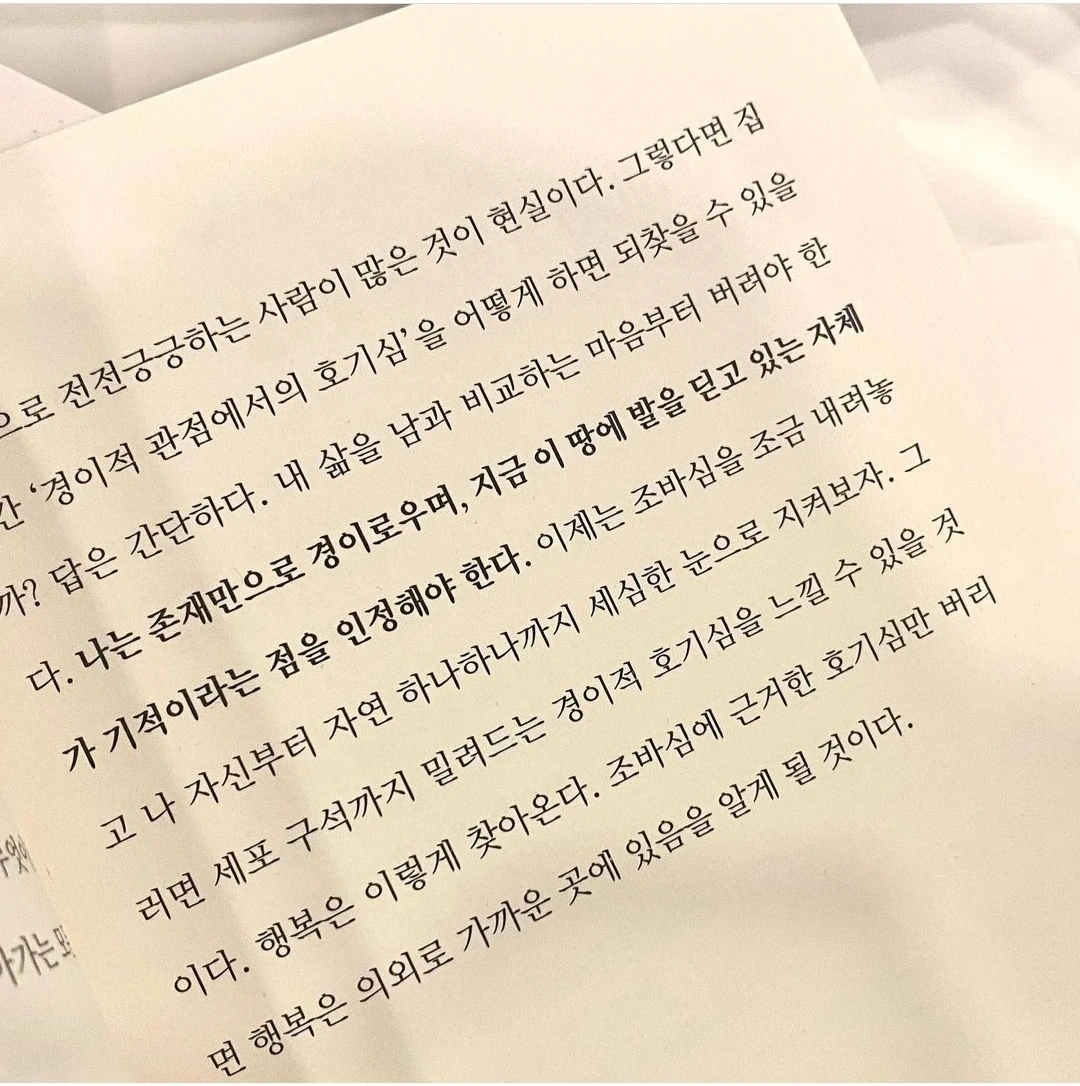 으로 전전긍긍하는 사람이 많은 것이 현실이다. 그렇다면 집
간 ‘경이적 관점에서의 호기심’을 어떻게 하면 되찾을 수 있을
까? 답은 간단하다. 내 삶을 남과 비교하는 마음부터 버려야 한
다. 나는 존재만으로 경이로우며, 지금 이 땅에 발을 딛고 있는 자체
가 기적이라는 점을 인정해야 한다. 이제는 조바심을 조금 내려놓
고 나 자신부터 자연 하나하나까지 세심한 눈으로 지켜보자. 그
러면 세포 구석까지 밀려드는 경이적 호기심을 느낄 수 있을 것
이다. 행복은 이렇게 찾아온다. 조바심에 근거한 호기심만 버리
면 행복은 의외로 가까운 곳에 있음을 알게 될 것이다.